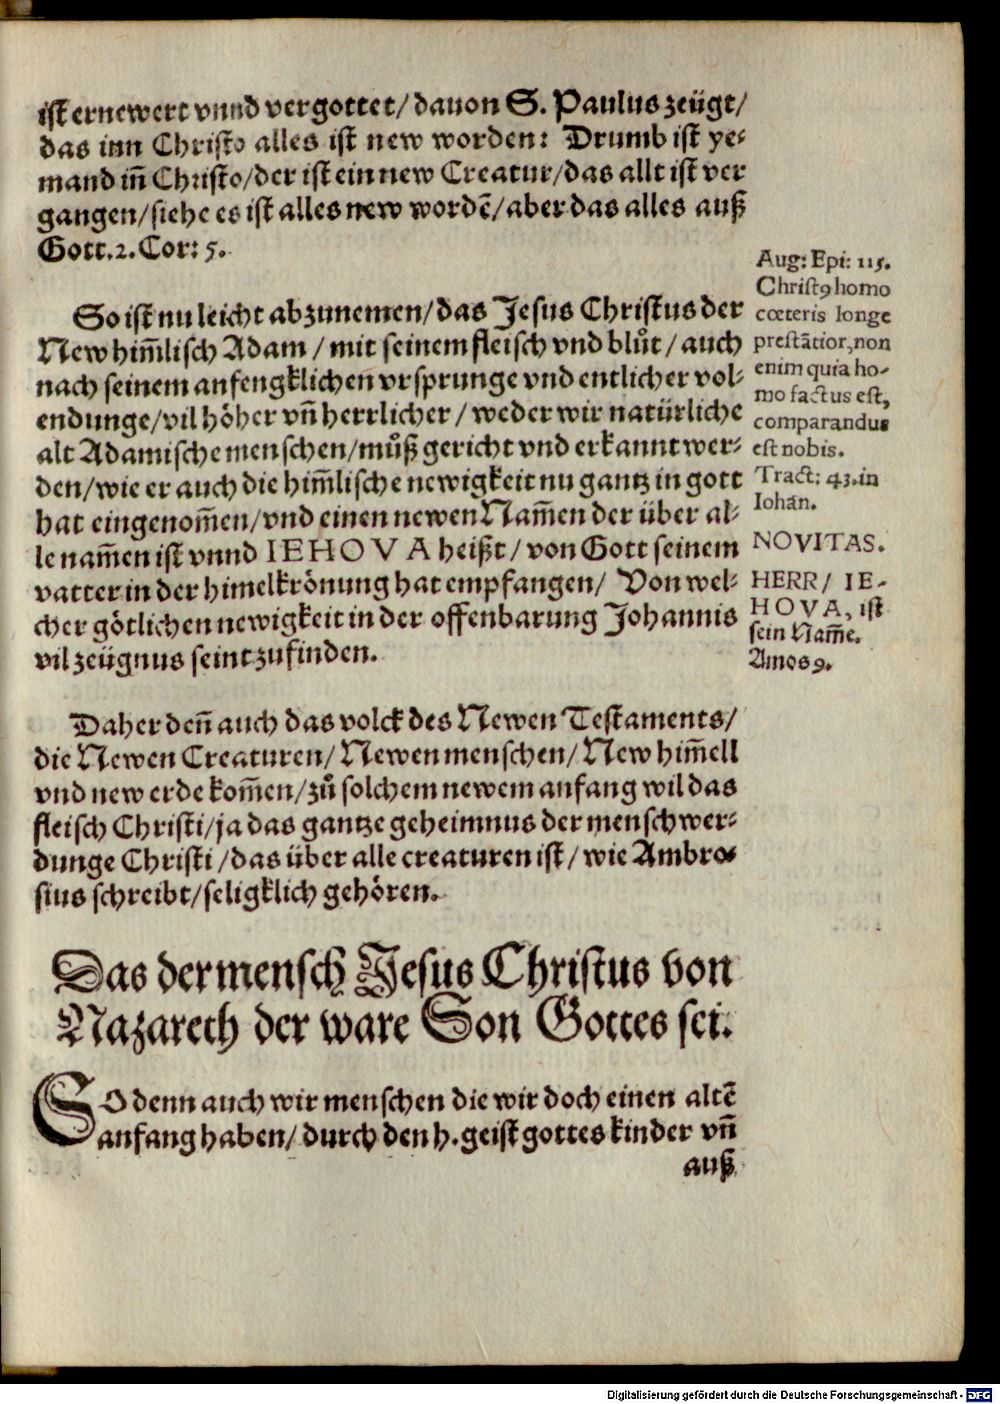 ist ernewert vnnd vergottet/ dauon S. Paulus zeügt/
das inn Christo alles ist new worden: Drumb ist ye-
mand iñ Christo/ der ist ein new Creatur/ das allt ist ver
gangen/ siehe es ist alles new wordē/ aber das alles auß
Gott. 2. Cor: 5.
So ist nu leicht abzunemen/ das Jesus Christus der
New him̃lisch Adam / mit seinem fleisch vnd blůt/ auch
nach seinem anfengklichen vrsprunge vnd entlicher vol-
endunge/ vil höher vñ herrlicher / weder wir natürliche
alt Adamische menschen/ můß gericht vnd erkannt wer-
den/ wie er auch die him̃lische newigkeit nu gantz in gott
hat eingenom̃en/ vnd einen newen Nam̃en der über al-
le nam̃en ist vnnd IEHOVA heißt/ von Gott seinem
vatter in der himelkrönung hat empfangen/ Von wel-
cher götlichen newigkeit in der offenbarung Johannis
vil zeügnus seint zufinden.
Aug: Epi: 115.
Christꝰ homo
cœteris longe
prestātior, non
enim quia ho-
mo factus est,
comparandus
est nobis.
Tract: 43. in
Iohan.
NOVITAS.
HERR/ IE-
HOVA, ist
sein Nam̃e.
Amos 9.
Daher deñ auch das volck des Newen Testaments/
die Newen Creaturen/ Newen menschen/ New him̃ell
vnd new erde kom̃en/ zů solchem newem anfang wil das
fleisch Christi/ ja das gantze geheimnus der menschwer-
dunge Christi / das über alle creaturen ist/ wie Ambro-
sius schreibt/ seligklich gehören.
Das der mensch Jesus Christus von
Nazareth der ware Son Gottes sei.
SO denn auch wir menschen die wir doch einen altē
anfang haben/ durch den h. geist gottes kinder vñ
auß
Digitalisierung gefördert durch die Deutsche Forschungsgemeinschaft - DFG